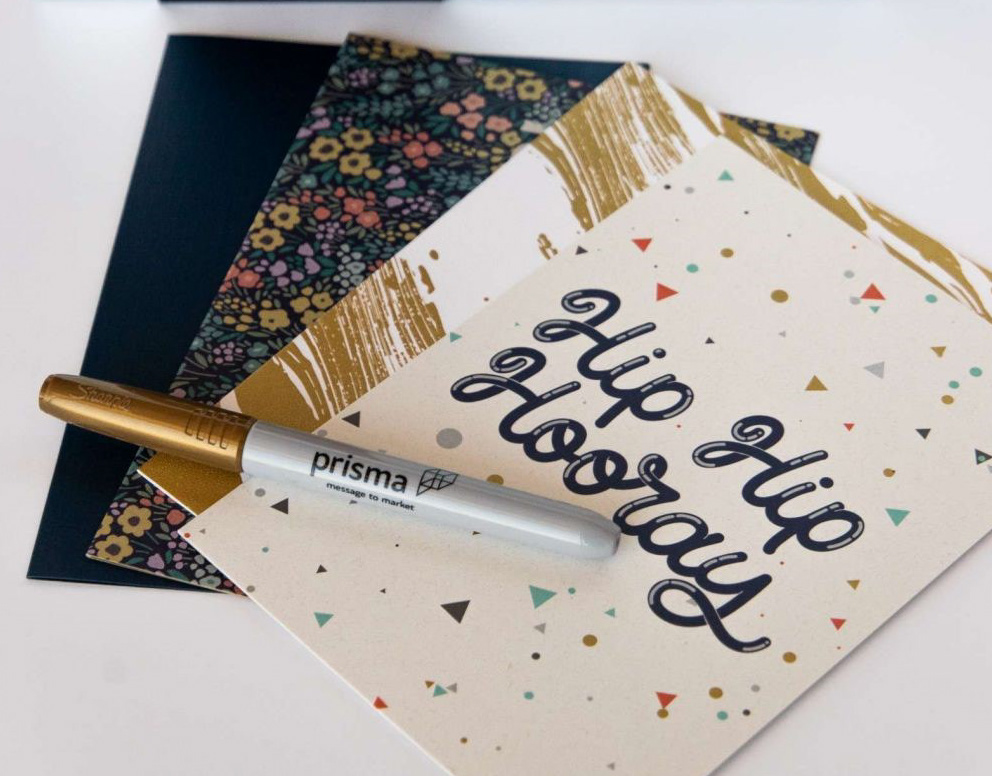 Hip Hip
Hooray
Sharpie
prisma
message to market